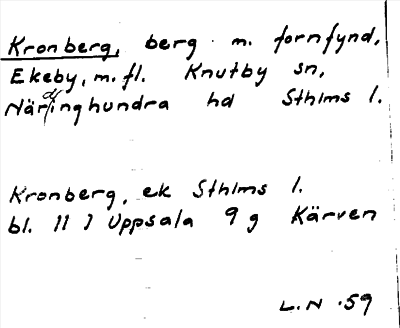 Kronberg, berg m. fornfynd,
Ekeby, m.fl. Knutby sn,
Närdinghundra hd Sthlms l.
Kronberg, ek Sthlms l.
bl. 11 J Uppsala 9 g Kärven
L.N. 59